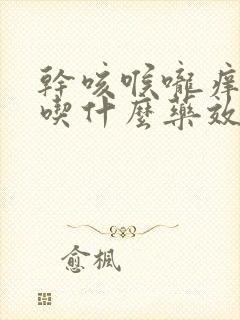 幹咳喉嚨痒
喫什麼藥效
愈楓